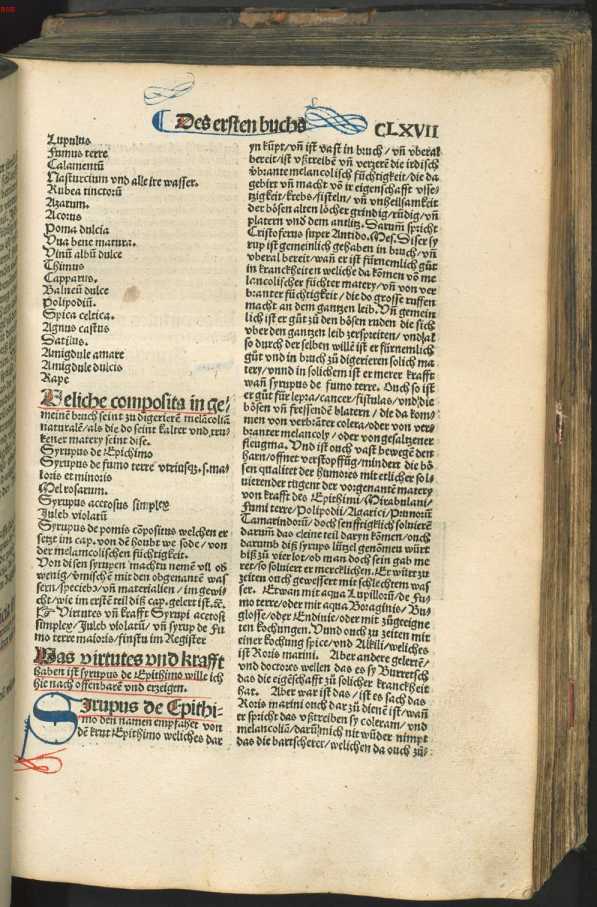 Des ersten buchs
CLXVII
Lupulus
Fumus terre
Calamentū
Nasturcium vnd alle ire wasser.
Rubea tinctorū
Azarum.
Acorus
Poma dulcia
Vua bene matura.
Vinū albū dulce
Thimus
Capparus.
Balneū dulce
Polipodiū.
Spica celtica.
Agnus castus
Satilus.
Amigdule amare
Amigdule dulcis
Rape
Weliche composita in ge/
meinē bruch seint zu digerierē melācoliā
naturalē/als die do seint kalter vnd tru/
kener matery seint dise.
Syrupus de Epichimo
Syrupus de fumo terre vtriusqʒ.s.ma/
ioris et minoris
Mel rosarum.
Syrupus acetosus simplex
Juleb violatū
Syrupus de pomis cōpositus welchen er
setzt im cap. von dē houbt we sode/von
der melancolischen füchtigkeit.
Von disen syrupen machtu nemē vll oď
wenig/vmischē mit den obgenantē was
sern/specieb/vn materialien/im gewi/
cht/wie im erstē teil diß cap. gelert ist.ꝛc.
☞ Virtutes vn krafft Syrupi acetosi
simplex/Juleb violatū/vn syrup de fu
mo terre maioris/finstu im Register
Was virtutes vnd krafft
haben ist syrupus de Epithimo wille ich
hie nach offenbarē vnd erzeigen.
Sirupus de Epithi-
mo den namen empfahet von
dē krut Epithimo weliches dar
yn kūpt/vn ist vast in bruch/vn vberal
bereit/ist vßtreibē vn verzerē die irdisch
vbrante melancolisch füchtigkeit/die da
gebirt vn macht vō ir eigenschafft vsse/
tzigkeit/krebs/fisteln/vn vnheilsamkeit
der bösen alten löcher grindig/rüdig/vn
platern vnd dem antlitz. Darum spricht
Cristoferus super Antido. Mes. Diser sy
rup ist gemeinlich gehaben in bruch/vn
vberal bereit/wan er ist fürnemlich gůt
in kranckheiten weliche da kōmen vō me
lancolischer füchter matery/vn von ver
branter füchtigkeit/die do grosse ruffen
macht an dem gantzen leib. Vn gemein
lich ist er gůt zů den bösen ruden die sich
vber den gantzen leib zerspreiten/vndal
so durch der selben willē ist er fürnemlich
gůt vnd in bruch zů digerieren solich ma
tery/vnnd in solichem ist er merer krafft
wan syrupus de fumo terre. Ouch so ist
er gůt für lepra/cancer/fistulas/vnd die
bösen vn fressendē blatern/die da kom/
men von verbrāter colera/oder von ver/
branter melancoly/oder von gesaltzener
fleugma. Vnd ist ouch vast bewegē den
harn/offnet verstopffūg/mindert die bö
sen qualitet der humores mit etlicher sol/
uierender tugent der vorgenantē matery
von krafft des Epithimi/Mirabulani/
Fumi terre/Polipodii/Agarici/Prunorū
Tamarindorū/doch senfftigklich soluierē
darum das cleine teil daryn kōmen/ouch
darumb diß syrups lützel genōmen würt
biß zů vier lot/ob man doch sein gab me
ret/so soluiert er mercklichen. Er würt zu
zeiten ouch gewessert mit schlechtem was
ser. Etwan mit aqua Lupillorū/de Fu/
mo terre/oder mit aqua Boraginis/Bu/
glosse/oder Endiuie/oder mit zůgeeigne
ten kochungen. Vnnd ouch zu zeiten mit
einer kochung spice/vnd Alkili/weliches
ist Roris marini. Aber andere gelertē/
vnd doctores wellen das es sy Burretsch
das die eigēschafft zů solicher kranckheit
hat. Aber war ist das/ist es sach das
Roris marini ouch dar zů dienē ist/wan
er spricht das vßtreiben sy coleram/vnd
melancoliā/darūmich nit wūder nimpt
das die bartscherer/welichen da ouch zů/